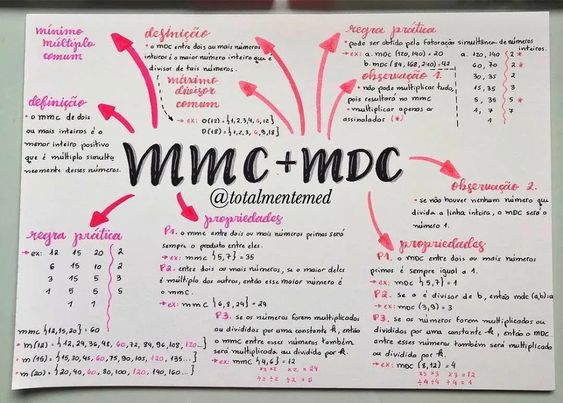 mínimo
múltiplo
comum
definição
• o mmc de dois
ou mais inteiros é o
menor inteiro positivo
que é múltiplo simulta
neamente desses números.
definição
• o mdc entre dois ou mais números
inteiros é o maior número inteiro que é
divisor de tais números.
máximo
divisor
comum
→ ex: D(12) = {1,2,3,4,6,12}
D(18) = {1,2,3,6,9,18}
regra prática
• pode ser obtido pela fatoração simultânea de números
inteiros.
→ ex: a. mdc (120, 140) = 20
b. mdc (84, 168, 210) = 42
a. 120, 140 | 2 *
60, 70 | 2 *
30, 35 | 2
15, 35 | 3
5, 35 | 5 *
1, 7 | 7
1
observação 1.
• não pode multiplicar tudo,
pois resultará no mmc
• multiplicar apenas os
assinalados (*)
MMC + MDC
@totalmentemed
observação 2.
• se não houver nenhum número que
divida a linha inteira, o mdc será o
número 1.
regra prática
→ ex: 12 15 20 | 2
6 15 10 | 2
3 15 5 | 3
1 5 5 | 5
1 1
mmc {12,15,20} = 60
• m(12) = {12, 24, 36, 48, 60, 72, 84, 96, 108, 120...}
• m(15) = {15, 30, 45, 60, 75, 90, 105, 120, 135...}
• m(20) = {20, 40, 60, 80, 100, 120, 140, 160...}
propriedades
P1. o mmc entre dois ou mais números primos será
sempre o produto entre eles.
→ ex: mmc {5,7} = 35
P2. entre dois ou mais números, se o maior deles
é múltiplo dos outros, então esse maior número é
o mmc.
→ ex: mmc {6,8,24} = 24
P3. se os números forem multiplicados
ou divididos por uma constante k, então
o mmc entre esses números também
será multiplicado ou dividido por k.
→ ex: mmc {4,6} = 12
x2 x2 x2 = 24
÷2 ÷2 ÷2 = 6
propriedades
P1. o mdc entre dois ou mais números
primos é sempre igual a 1.
→ ex: mdc (5,7) = 1
P2. se a é divisor de b, então mdc (a,b) = a
→ ex: mdc (3,9) = 3
P3. se os números forem multiplicados ou
divididos por uma constante k, então o mdc
entre esses números também será multiplicado
ou dividido por k.
→ ex: mdc (8,12) = 4
x3 x3 x3 = 12
÷4 ÷4 ÷4 = 1